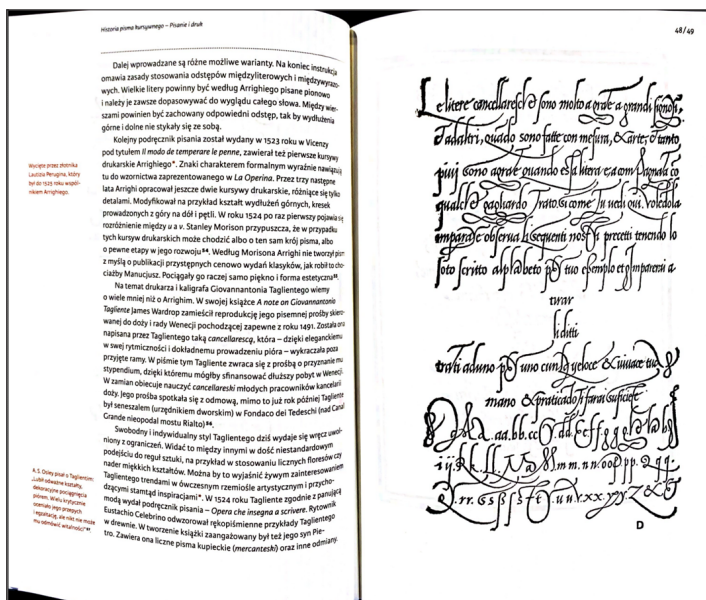 Historia pisma kursywnego – Pisanie i druk
Dalej wprowadzane są różne możliwe warianty. Na koniec instrukcja
omawia zasady stosowania odstępów międzyliterowych i międzywyrazo-
wych. Wielkie litery powinny być według Arrighiego pisane pionowo
i należy je zawsze dopasowywać do wyglądu całego słowa. Między wier-
szami powinien być zachowany odpowiedni odstęp, tak by wydłużenia
górne i dolne nie stykały się ze sobą.
Kolejny podręcznik pisania został wydany w 1523 roku w Vicenzy
pod tytułem Il modo de temperare le penne, zawierał też pierwsze kursywy
drukarskie Arrighiego*. Znaki charakterem formalnym wyraźnie nawiązują
tu do wzornictwa zaprezentowanego w La Operina. Przez trzy następne
lata Arrighi opracował jeszcze dwie kursywy drukarskie, różniące się tylko
detalami. Modyfikował na przykład kształt wydłużeń górnych, kresek
prowadzonych z góry na dół i pętli. W roku 1524 po raz pierwszy pojawia się
rozróżnienie między u a v. Stanley Morison przypuszcza, że w przypadku
tych kursyw drukarskich może chodzić albo o ten sam krój pisma, albo
o pewne etapy w jego rozwoju. Według Morisona Arrighi nie tworzył pism
z myślą o publikacji przystępnych cenowo wydań klasyków, jak robił to cho-
ciażby Manucjusz. Pociągały go raczej samo piękno i forma estetyczna.
Na temat drukarza i kaligrafa Giovannantonia Tagliente wiemy
o wiele mniej niż o Arrighim. W swojej książce A note on Giovannantonio
Tagliente James Wardrop zamieścił reprodukcję jego pisemnej prośby skiero-
wanej do doży i rady Wenecji pochodzącej zapewne z roku 1491. Została ona
napisana przez Tagliente taką cancellarescą, która – dzięki eleganckiemu
w swej rytmiczności i dokładnemu prowadzeniu pióra – wykraczała poza
przyjęte ramy. W piśmie tym Tagliente zwraca się z prośbą o przyznanie mu
stypendium, dzięki któremu mógłby sfinansować dłuższy pobyt w Wenecji.
W zamian obiecuje nauczyć cancellareski młodych pracowników kancelarii
doży. Jego prośba spotkała się z odmową, mimo to już rok później Tagliente
był seneszalem (urzędnikiem dworskim) w Fondaco dei Tedeschi (nad Canal
Grande nieopodal mostu Rialto).
Swobodny i indywidualny styl Tagliente dziś wydaje się wręcz uwol-
niony z ograniczeń. Widać to między innymi w dość niestandardowym
podejściu do reguł sztuki, na przykład w stosowaniu licznych floresów czy
nader miękkich kształtów. Można by to wyjaśnić żywym zainteresowaniem
Tagliente trendami w ówczesnym rzemiośle artystycznym i przycho-
dzącymi stamtąd inspiracjami*. W 1524 roku Tagliente zgodnie z panującą
modą wydał podręcznik pisania – Opera che insegna a scrivere. Rytownik
Eustachio Celebrino odwzorował rękopiśmienne przykłady Tagliente
w drewnie. W tworzenie książki zaangażowany był też jego syn Pie-
tro. Zawiera ona liczne pisma kupieckie (mercanteski) oraz inne odmiany.
Wycięte przez złotnika
Lautizia Perugina, który
był do 1525 roku wspól-
nikiem Arrighiego.
A. S. Osley pisał o Tagliente:
„Lubił odważne kształty,
dekoracyjne pociągnięcia
piórem. Wielu krytycznie
oceniało jego przepych
i egzaltację, ale nikt nie może
mu odmówić witalności”
48/49
Le litere cancellaresche sono molto a grade a grandi signori,
& ad altri, quado sono fatte con mesura, & arte, & tanto
piu
qualche gagliardo Trato. Si come Tu vedi qui. Volendola
imparare observa li sequenti nostri precetti tenendo lo
soto scritto alphabeto per tuo exemplo et Imparerai a
tirar
li ditti
tratti aduno per uno cum veloce & vivace tua
mano & praticadosi farai sufficiente
.aa.bb.cc
D